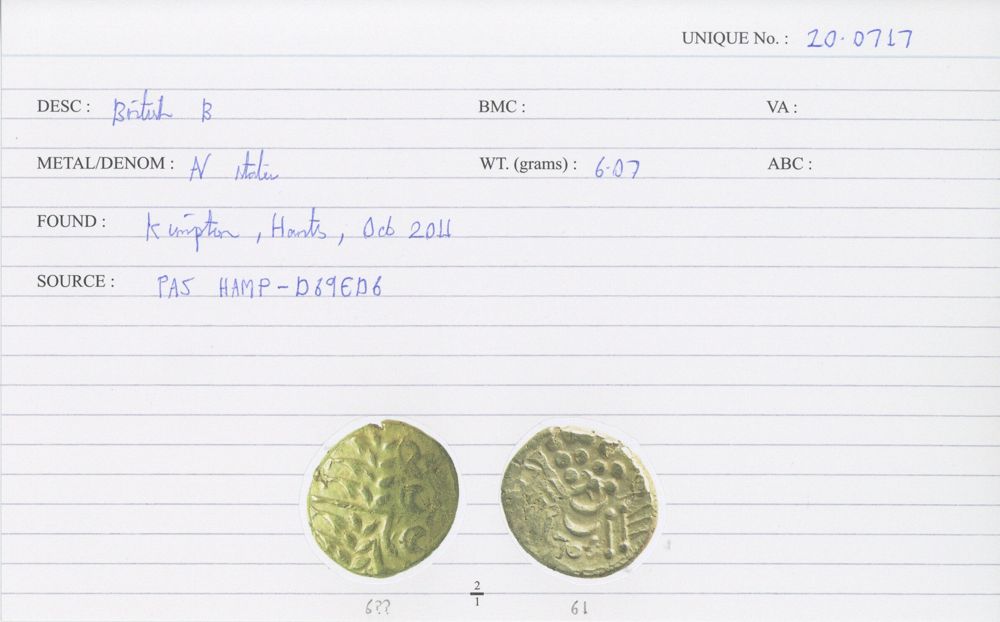 UNIQUE No. : 20·0717
DESC : British B BMC : VA :
METAL/DENOM : AV stater WT. (grams) : 6·07 ABC :
FOUND : Kimpton, Hants, Oct 2011
SOURCE : PAS HAMP-D69ED6
2
1
6?? 61